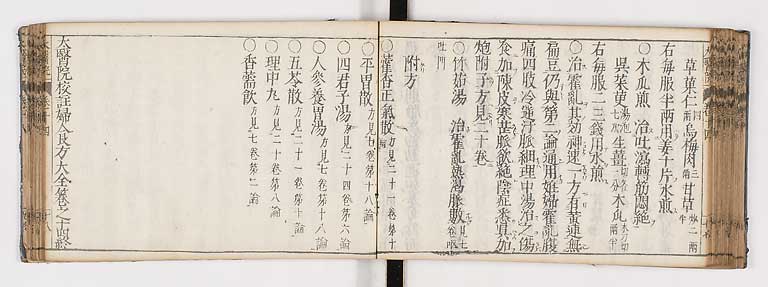 草菓仁四兩 烏梅肉三兩 甘草炒二兩
右每服半兩用姜十片水煎
○木瓜煎 治吐瀉轉筋悶絕
吳茱萸湯泡七次 生薑切各一分 木瓜木刀切兩半
右每服二三錢用水煎
○治霍亂其効神速一方有黃連無
扁豆仍與第二論通用姙娠霍亂腹
痛四肢冷逆汗脉細理中湯治之傷
食加陳皮寒苦脉飲絕陰症悉具加
炮附子方見二十卷
○竹茹湯 治霍亂熱渴脉數方見七卷
吐門
附方
○藿香正氣散方見二十一卷第十論
○平胃散方見七卷第十八論
○四君子湯方見二十四卷第六論
○人參養胃湯方見七卷第十八論
○五苓散方見七卷第十論
○理中丸方見二十卷第八論
○香薷飲方見七卷第二論
太醫院校註婦人良方大全卷之十四終